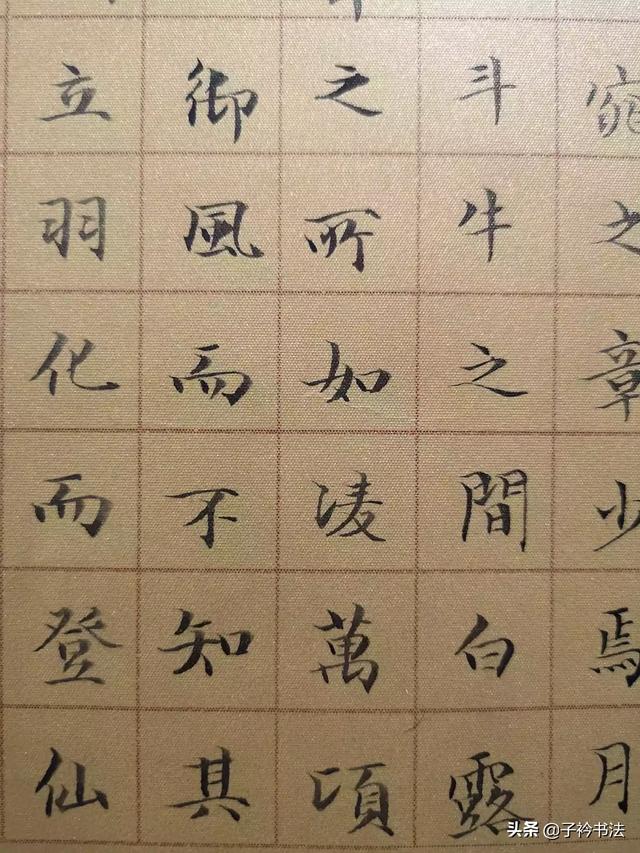 窕之章少焉月
斗牛之間白露
之所如凌萬頃
御風而不知其
立羽化而登仙
头条 @子衿书法